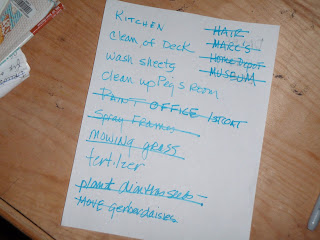 KITCHEN
clean of Deck
wash sheets
clean up Peg's Room
PAINT OFFICE
Spray Frames
mowing grass
fertilzer
plant dianthus
MOVE Gerber daisies
HAIR
MARC'S
HOME DEPOT
MUSEUM